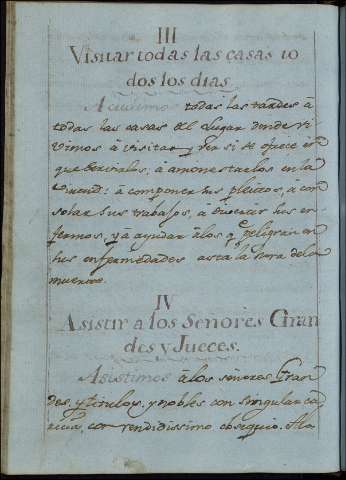 III
Visitar todas las casas to
dos los dias.
Acudimos todas las tardes á
todas las casas del Lugar donde vi
vimos á visitar y ver si se ofrece en
que servirlos, á amonestarlos en la
virtud: á componer sus pleitos, á con
solar sus trabajos, á buscar sus en
fermos, y á ayudar álos q.e peligran en
sus enfermedades asta la hora dela
muerte.
IV
Asistir a los Señores Gran
des y Jueces.
Asistimos álos señores Gran
des, y titulos, y nobles con singular ca
ricia, con rendidissimo obsequio. Ala